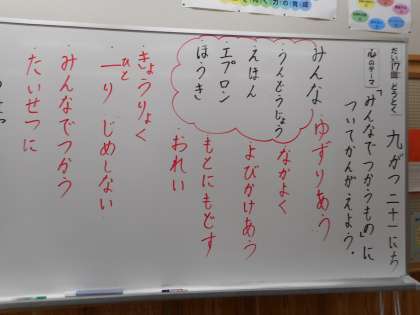 だい17回 どうとく 九がつ二十一にち
心のテーマ
「みんなでつかうもの」に
ついてかんがえよう。
みんな
うんどうじょう
えほん
エプロン
ほうき
ゆずりあう
なかよく
よびかけあう
もとにもどす
おれい
きょうりょく
一人じめしない
ひと
みんなでつかう
たいせつに